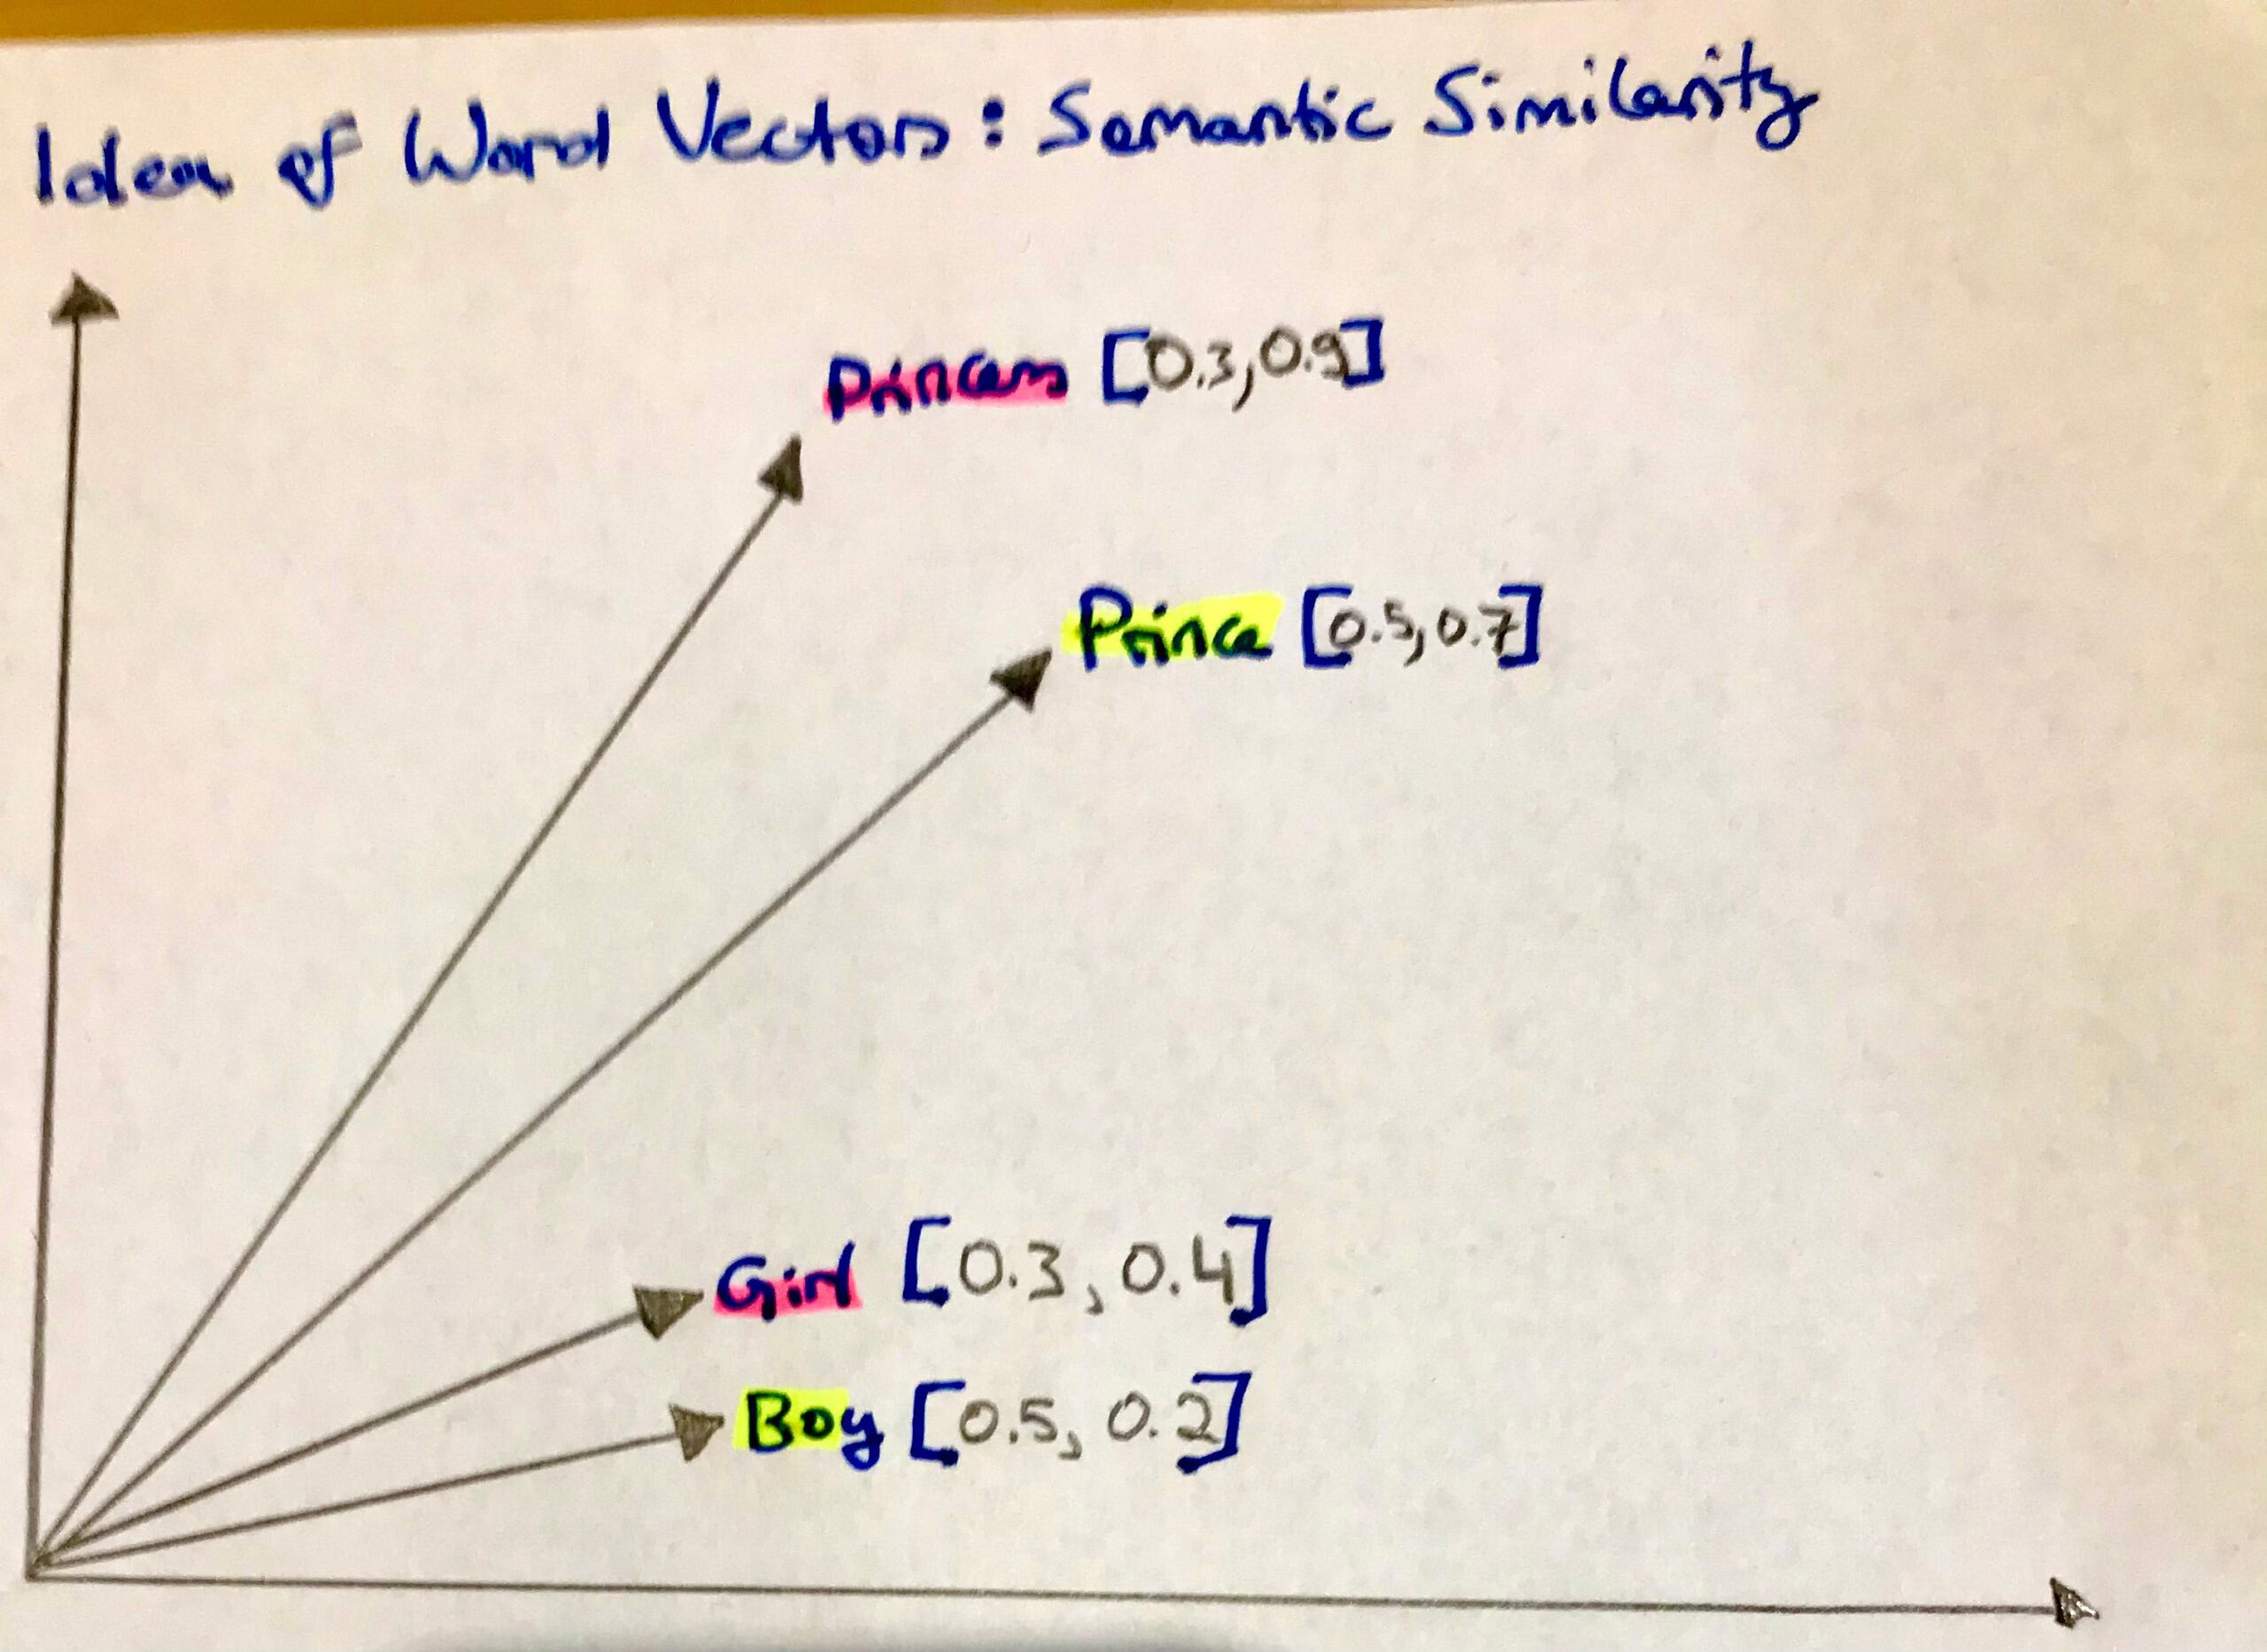 Idea of Word Vectors: Semantic Similarity
Princess [0.3,0.9]
Prince [0.5,0.7]
Girl [0.3, 0.4]
Boy [0.5, 0.2]